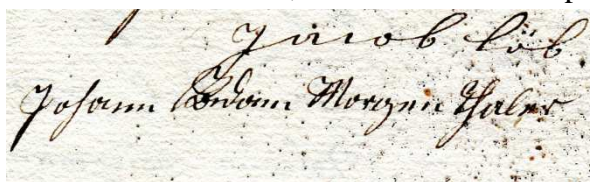 Jacob Löb
Johann Adam Morgenthaler